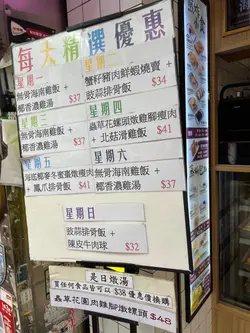 每天精選優惠
星期一
無骨海南雞飯+
椰香濃雞湯 $37
星期二
蟹籽豬肉鮮蝦燒賣+
豉蒜排骨飯 $34
星期三
無骨海南雞飯+
椰香濃雞湯 $37
星期四
蟲草花螺頭燉雞腳瘦肉
+北菇滑雞飯 $41
星期五
海底椰麥冬蜜棗燉瘦肉
+鳳爪排骨飯 $41
星期六
無骨海南雞飯+
椰香濃雞湯 $37
星期日
豉蒜排骨飯+
陳皮牛肉球 $32
是日燉湯
買任何食品皆可以$38優惠價換購
蟲草花圓肉雞腳燉螺頭 $48